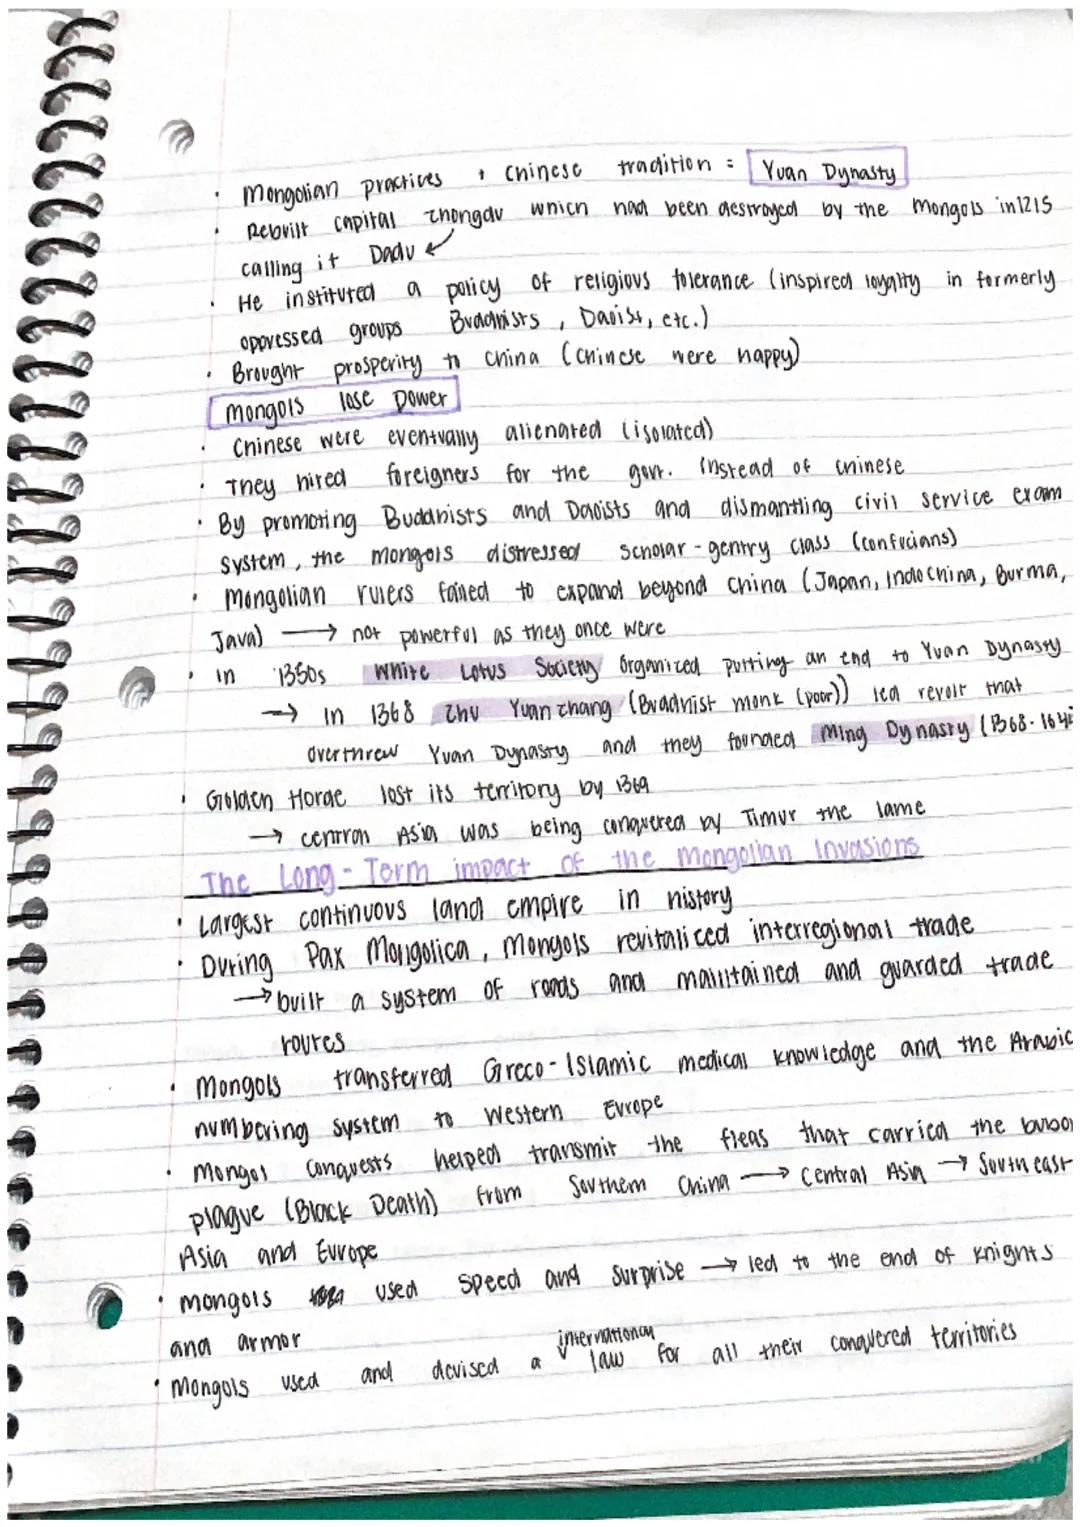 • Mongolian practices + Chinese tradition = Yuan Dynasty
• Rebuilt capital Zhongdu which had been destroyed by the Mongols in 1215
calling it Dadu ↙
• He instituted a policy of religious tolerance (inspired loyalty in formerly
oppressed groups Buddhists, Daoist, etc.)
• Brought prosperity to China (Chinese were happy)
Mongols lose power
• Chinese were eventually alienated (isolated)
• They hired foreigners for the govt. instead of Chinese
• By promoting Buddhists and Daoists and dismantling civil service exam
system, the Mongols distressed scholar-gentry class (confucians)
• Mongolian rulers failed to expand beyond China (Japan, Indochina, Burma,
Java) → not powerful as they once were
• in 1350s White Lotus Society organized putting an end to Yuan Dynasty
→ in 1368 Zhu Yuanzhang (Buddhist monk (poor)) led revolt that
overthrew Yuan Dynasty and they founded Ming Dynasty (1368-
• Golden Horde lost its territory by 1369
→ central Asia was being conquered by Timur the lame
The Long-Term impact of the Mongolian Invasions
• Largest continuous land empire in history
• During Pax Mongolica, Mongols revitaliced interregional trade
→ built a system of roads and maintained and guarded trade
routes
• Mongols transferred Greco-Islamic medical knowledge and the Arabic
numbering system to Western Europe
• Mongol conquests helped transmit the fleas that carried the bubo
plague (Black Death) from Southern China → Central Asia → Southeast
Asia and Europe
• Mongols used speed and surprise → led to the end of knights
and armor
• Mongols used and devised a international law for all their conquered territories